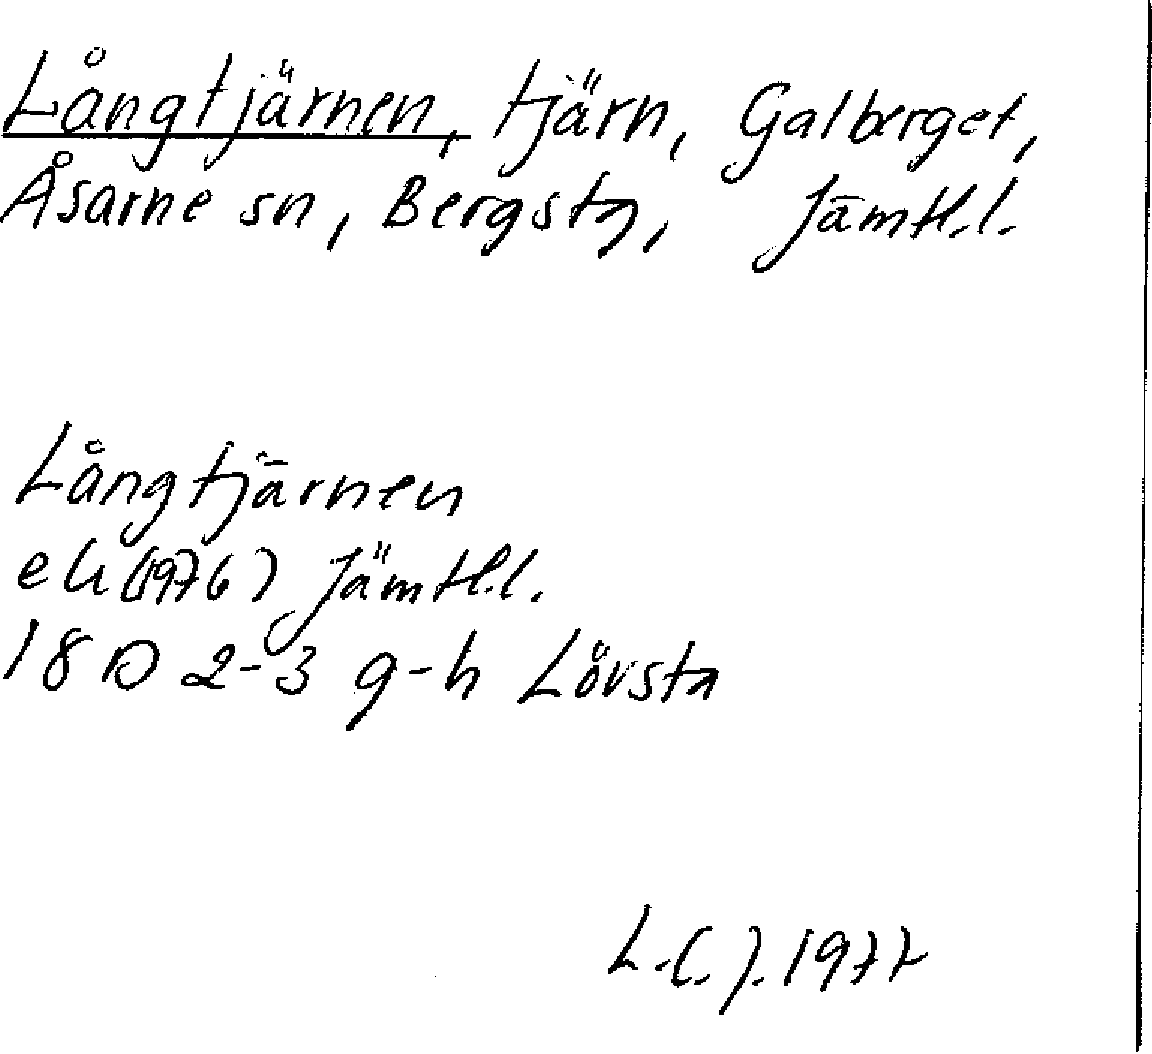 Långtjärnen, tjärn, Galberget,
Åsarne sn, Bergs tg, Jämtl.l.
Långtjärnen
ek (1976) Jämtl.l.
18 D 2-3 g-h Lövsta
L.C.J. 1977